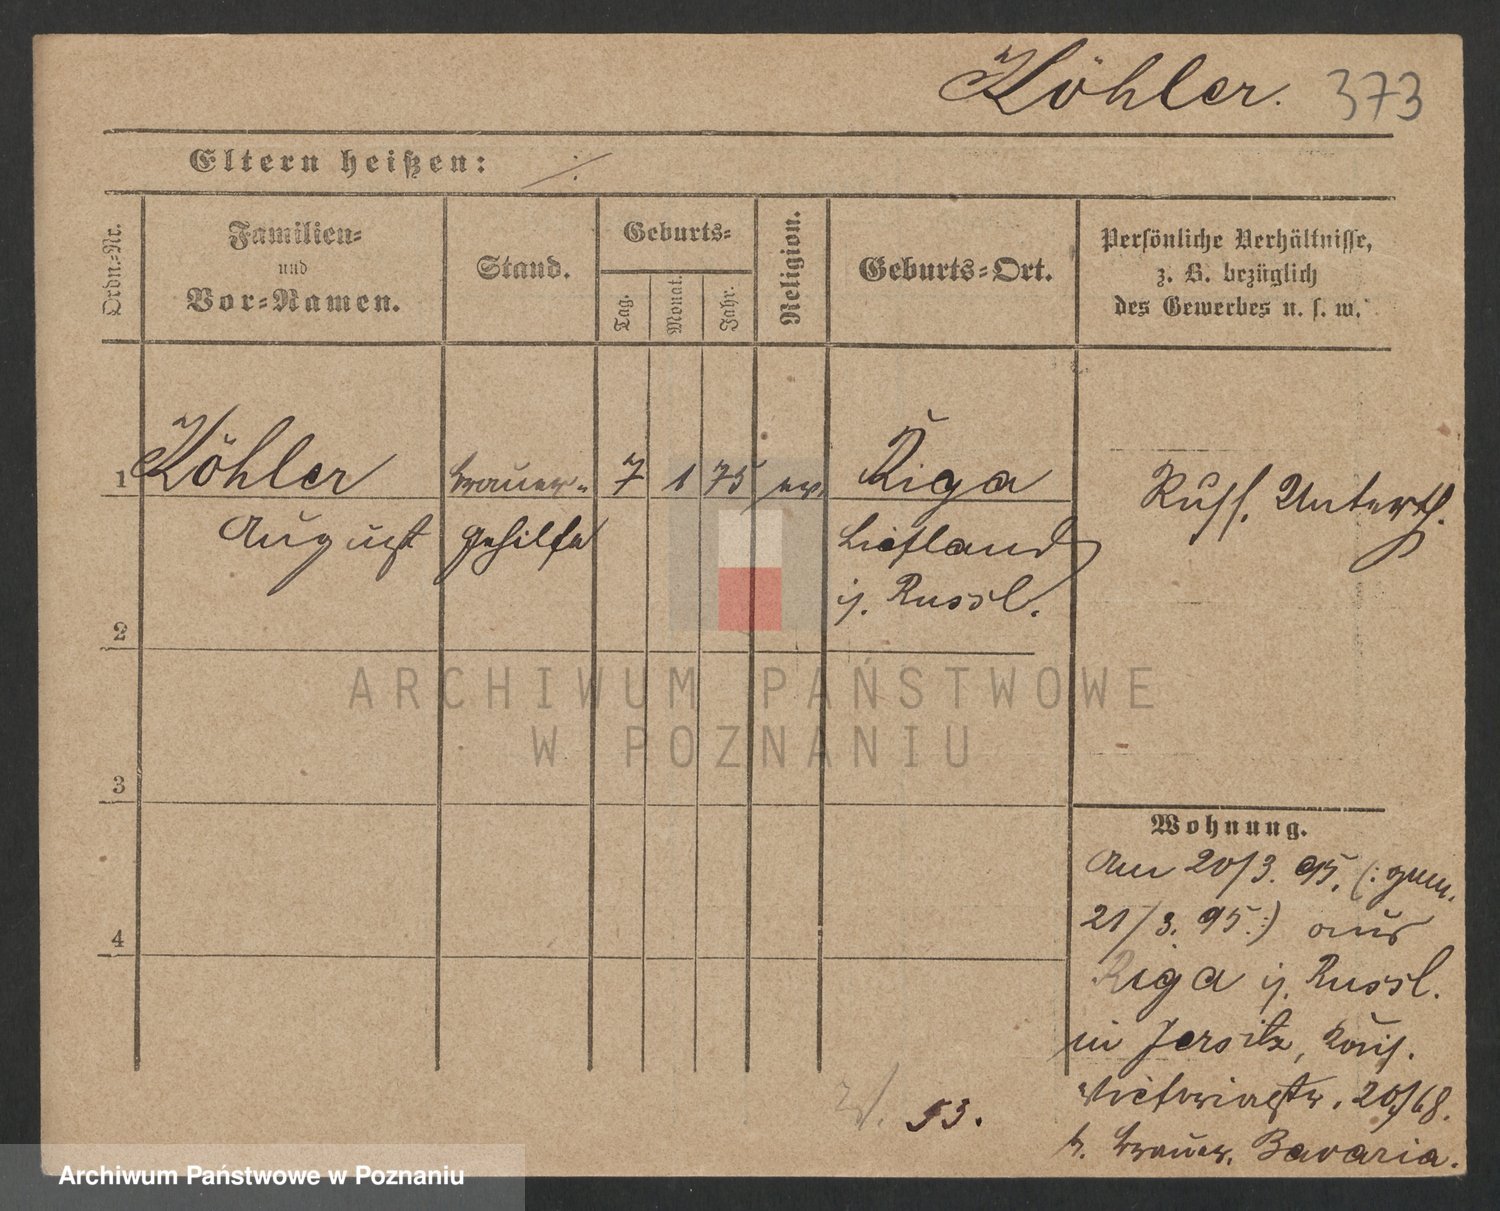 Köhler. 373
Eltern heißen: ./.
Ordn.-Nr.
Familien-
und
Vor-Namen.
Stand.
Geburts-
Tag.
Monat.
Jahr.
Religion.
Geburts-Ort.
Persönliche Verhältnisse,
z. B. bezüglich
des Gewerbes u. s. w.
1 Köhler Brauer- 7 1 75 ev. Riga Russ. Unterth.
August gehilfe Liefland
i/. Russl.
2
3
4
Wohnung.
Am 20/3. 95. (: gem.
21/3. 95. :) aus
Riga i/. Russl.
in Jersitz,
Victoriastr. 20/68.
b. Brauer. Bavaria.
53.
ARCHIWUM PAŃSTWOWE
W POZNANIU
Archiwum Państwowe w Poznaniu